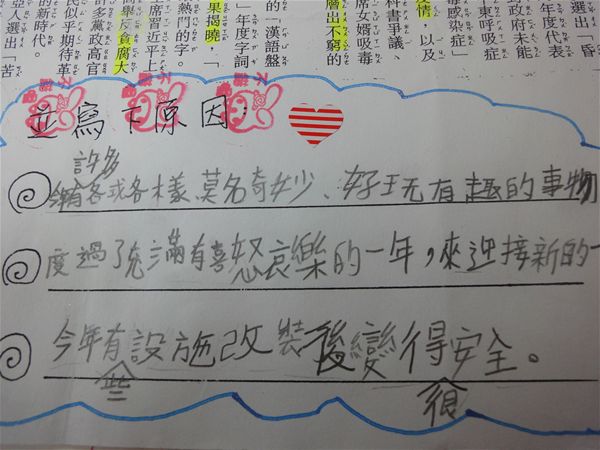 選出「昏
年度代表
政府未能
東呼吸症
毒感染症」
情，以及
科書爭議、
席女婿吸毒
層出不窮的
的「漢語盤
果揭曉，「
」年度字詞
熱門的字。
席習近平上
斥貪腐大
多黨政高官
民似乎期待革
的新時代。
亞人選出「苦
並寫下原因：
許多
今有各或各樣、莫名奇妙、好玩有趣的事物
度過了充滿有喜怒哀樂的一年，來迎接新的一
今年有設施改裝後變得安全。
些
很